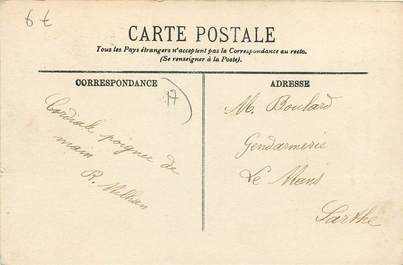 6€
CARTE POSTALE
Tous les Pays étrangers n'acceptent pas la Correspondance au recto.
(Se renseigner à la Poste).
CORRESPONDANCE
Cordiale poignée de
main
R.
ADRESSE
M. Boulard
Gendarmerie
Le Mans
Sarthe